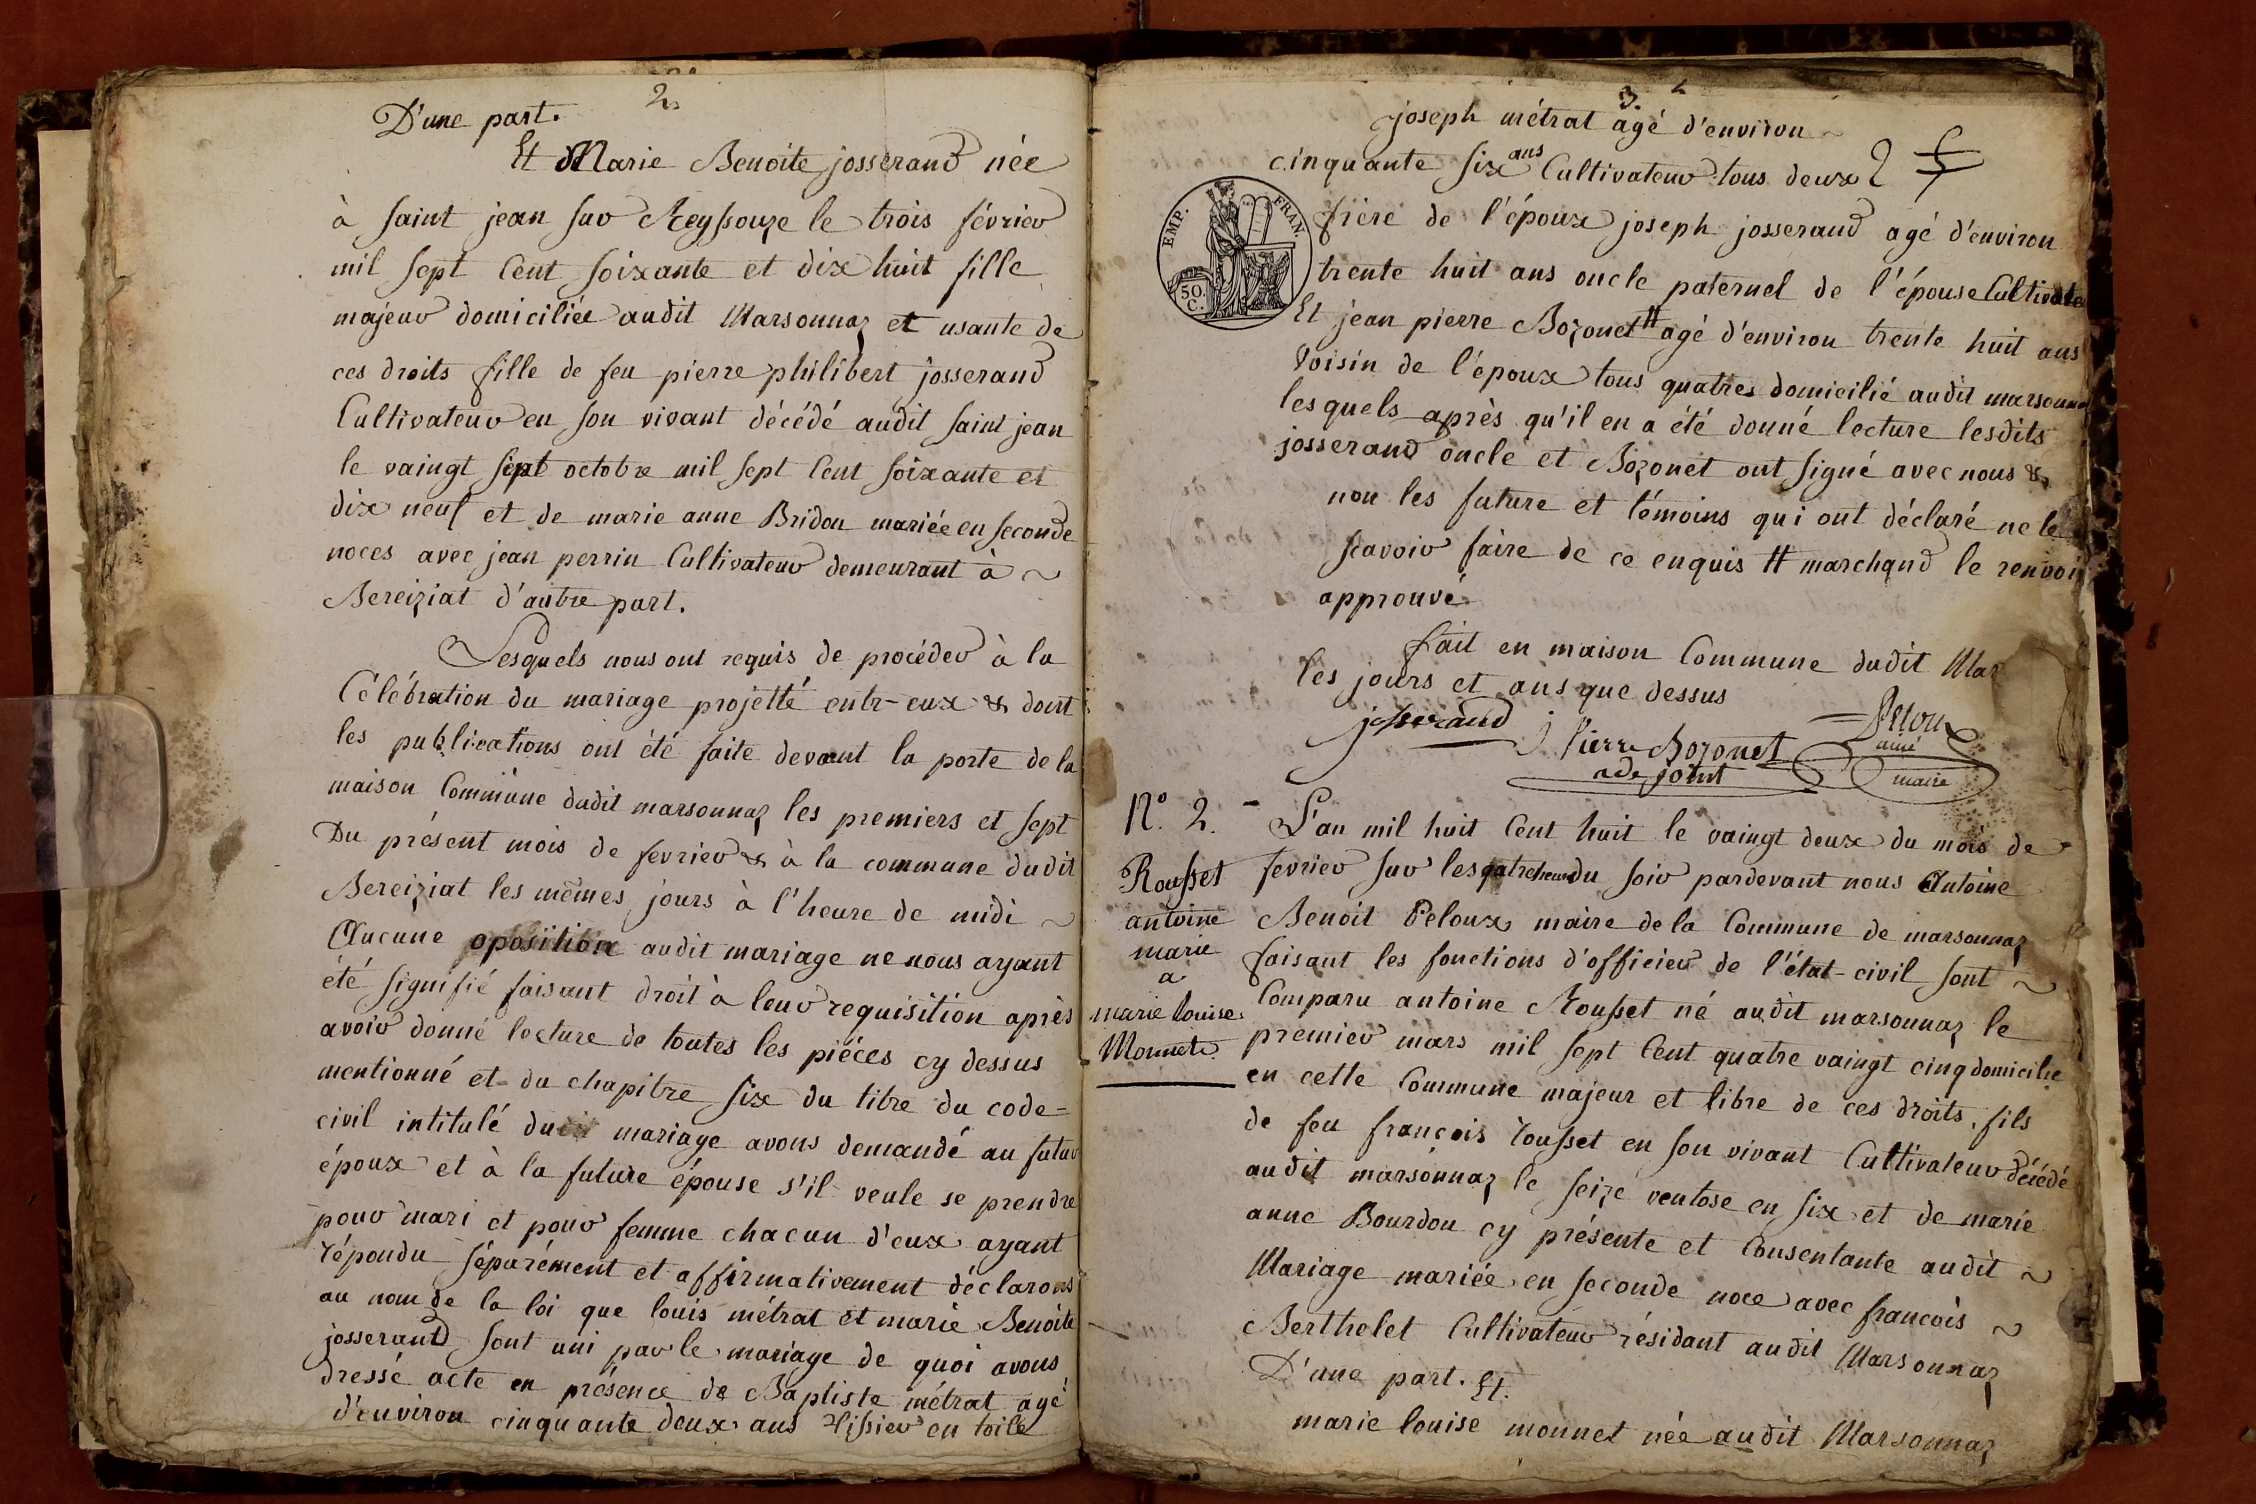 2.
D'une part.
Et Marie Benoite josserand née
à saint jean sur Reyssouze le trois février
mil sept Cent soixante et dix huit fille
majeur domiciliée audit Marsonnaz et usante de
ces droits fille de feu pierre philibert josserand
Cultivateur en son vivant décédé audit saint jean
le vaingt sept octobre mil sept Cent soixante et
dix neuf et de marie anne Bridon mariée en seconde
noces avec jean perrin Cultivateur demeurant à ~
Bereiziat d'autre part.
Lesquels nous ont requis de procéder à la
Célébration du mariage projetté entr-eux & dont
les publications ont été faite devant la porte de la
maison Commune dudit marsonnaz les premiers et sept
Du présent mois de fevrier & à la commune dudit
Bereiziat les mêmes jours à l'heure de midi ~
Aucune oposition audit mariage ne nous ayant
été signifié faisant droit à leur requisition après
avoir donné lecture de toutes les piéces cy dessus
mentionné et du chapitre six du titre du code=
civil intitulé du mariage avons demandé au futur
époux et à la future épouse s'il veule se prendre
pour mari et pour femme chacun d'eux ayant
répondu séparément et affirmativement déclarons
au nom de la loi que louis métrat et marie Benoite
josserand sont uni par le mariage de quoi avons
dressé acte en présence de Baptiste métrat agé
d'environ cinquante deux ans tissier en toile
3.
joseph métrat agé d'environ ~
cinquante six ans Cultivateur tous deux
EMP. FRAN.
50. C.
frère de l'époux joseph josserand agé d'environ
trente huit ans oncle paternel de l'épouse Cultivate
Et jean pierre Bozonet # agé d'environ trente huit ans
Voisin de l'époux tous quatres domicilié audit marsonna
lesquels après qu'il en a été donné lecture lesdits
josserand oncle et Bozonet ont signé avec nous &
non les future et témoins qui ont déclaré ne le
scavoir faire de ce enquis # marchand le renvoi
approuvé
fait en maison Commune dudit Mar
les jours et ans que dessus
josserand J Pierre Bozonet Peloux
adejoint
ainé
maire
N.° 2. - L'an mil huit Cent huit le vaingt deux du mois de
Rousset
antoine
marie
a
marie louise
Monnet.
fevrier sur les quatre heure du soir pardevant nous Antoine
Benoit Peloux maire de la Commune de marsonnaz
faisant les fonctions d'officier de l'état-civil sont ~
Comparu antoine Rousset né audit marsonnaz le
premier mars mil sept Cent quatre vaingt cinq domicilie
en cette Commune majeur et libre de ces droits, fils
de feu françois rousset en son vivant Cultivateur décédé
audit marsonnaz le seize ventose en six et de marie
anne Bourdon cy présente et Consentante audit ~
Mariage mariée en seconde noce avec francois ~
Berthelet Cultivateur résidant audit Marsonnaz
D'une part. Et.
marie louise monnet née audit Marsonnaz